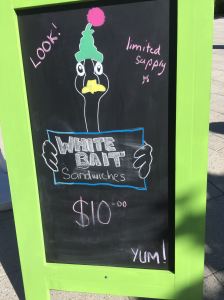 LOOK!
limited
supply
WHITE
BAIT
Sandwiches
$10.00
YUM!